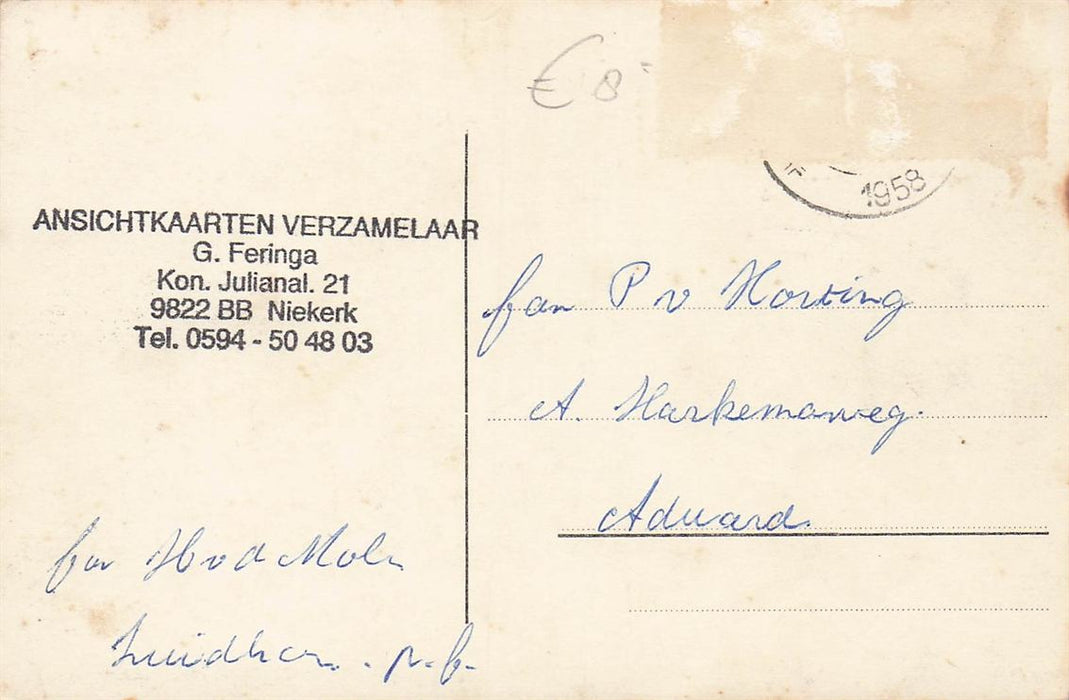 € 8
1958
ANSICHTKAARTEN VERZAMELAAR
G. Feringa
Kon. Julianal. 21
9822 BB Niekerk
Tel. 0594 - 50 48 03
fam P v Horsing
A. Harkemaweg.
Aduard.
fam H v d Molen
Zuidhorn.